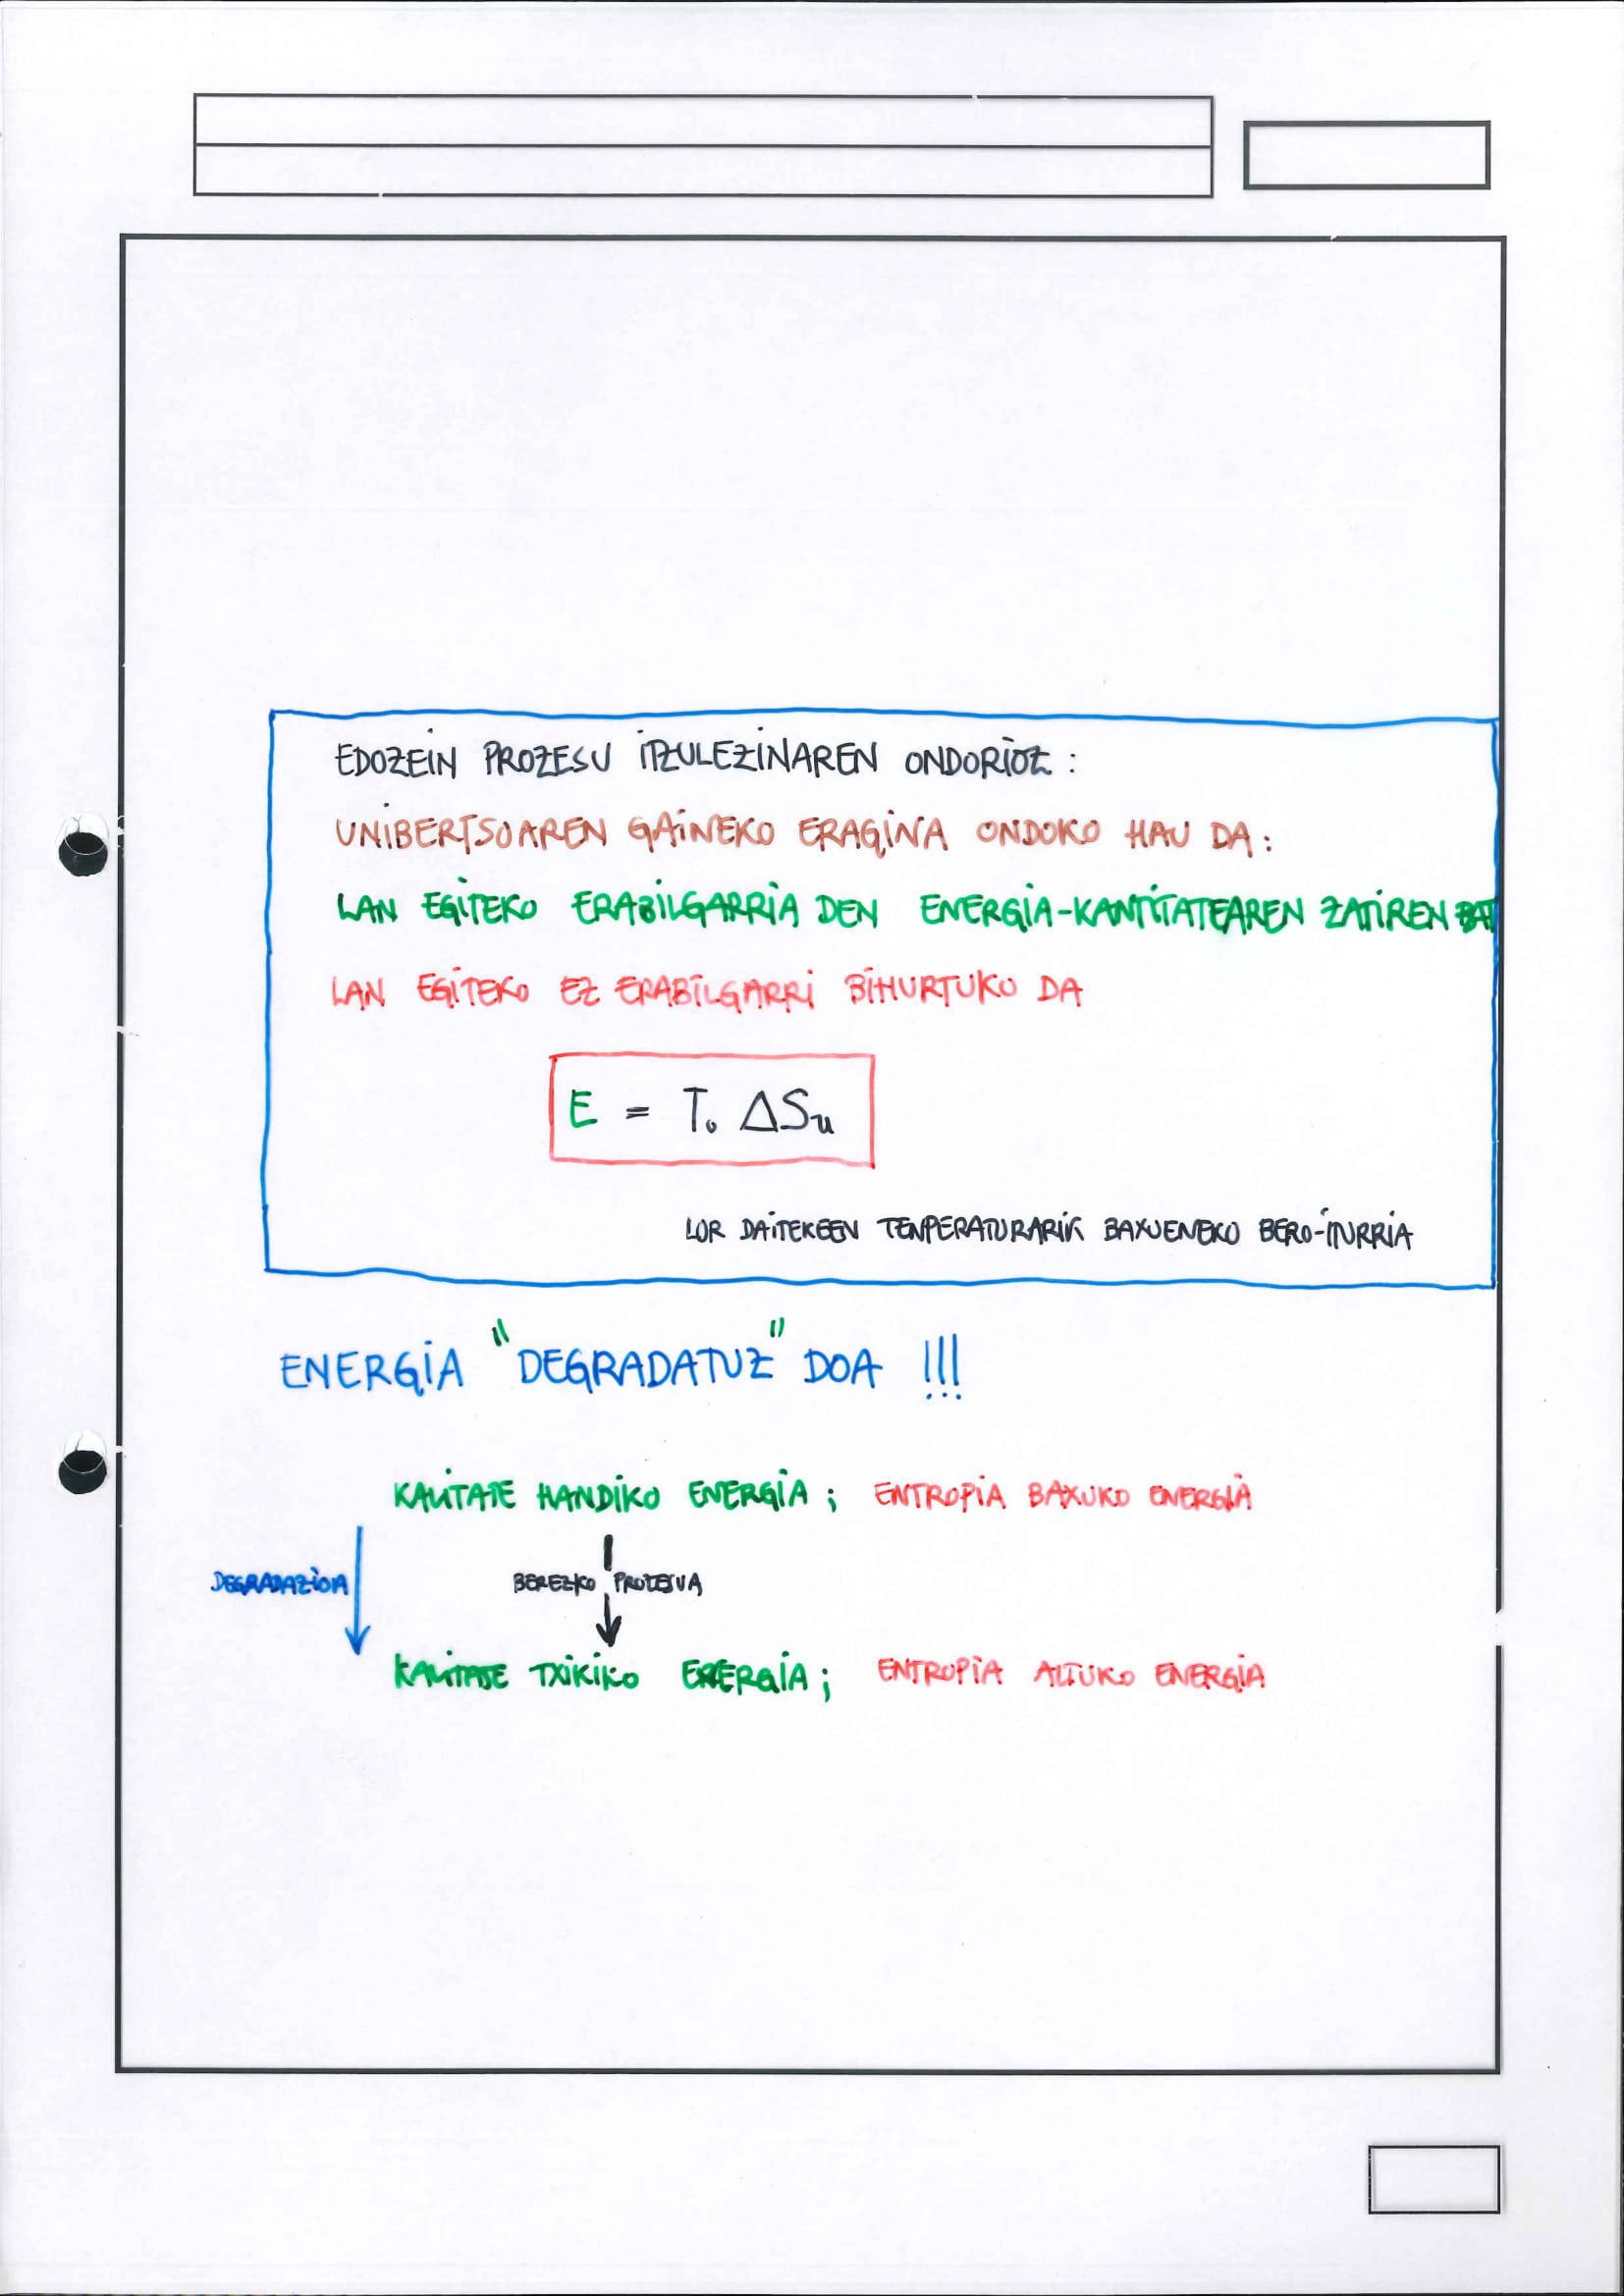 EDOZEIN PROZESU ITZULEZINAREN ONDORIOZ :
UNIBERTSOAREN GAINEKO ERAGINA ONDOKO HAU DA :
LAN EGITEKO ERABILGARRIA DEN ENERGIA-KANTITATEAREN ZATIREN BAT
LAN EGITEKO EZ ERABILGARRI BIHURTUKO DA
E = T₀ ΔSu
LOR DAITEKEEN TENPERATURARIK BAXUENEKO BERO-ITURRIA
ENERGIA "DEGRADATUZ" DOA !!!
KALITATE HANDIKO ENERGIA ; ENTROPIA BAXUKO ENERGIA
DEGRADAZIOA BEREZKO PROZESUA
KALITATE TXIKIKO ENERGIA ; ENTROPIA ALTUKO ENERGIA